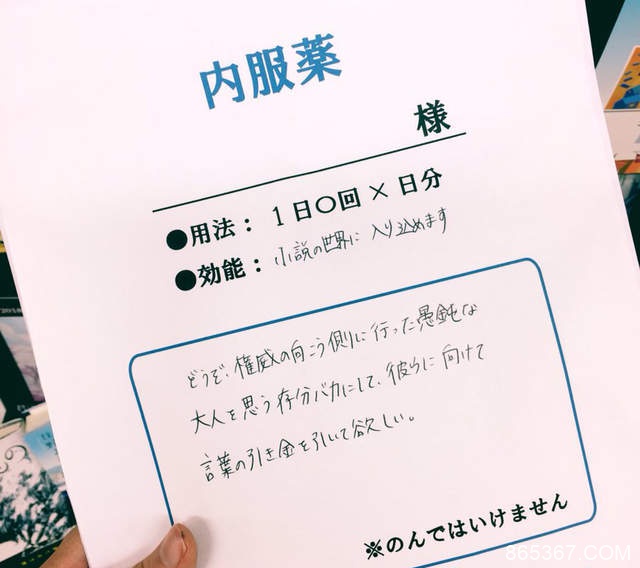 内服薬
様
●用法：1日〇回×日分
●効能：小説の世界に入り込めます
どうぞ、権威の向こう側に行った愚鈍な
大人を思う存分バカにして、彼らに向けて
言葉の引き金を引いて欲しい。
※のんではいけません
865367.COM